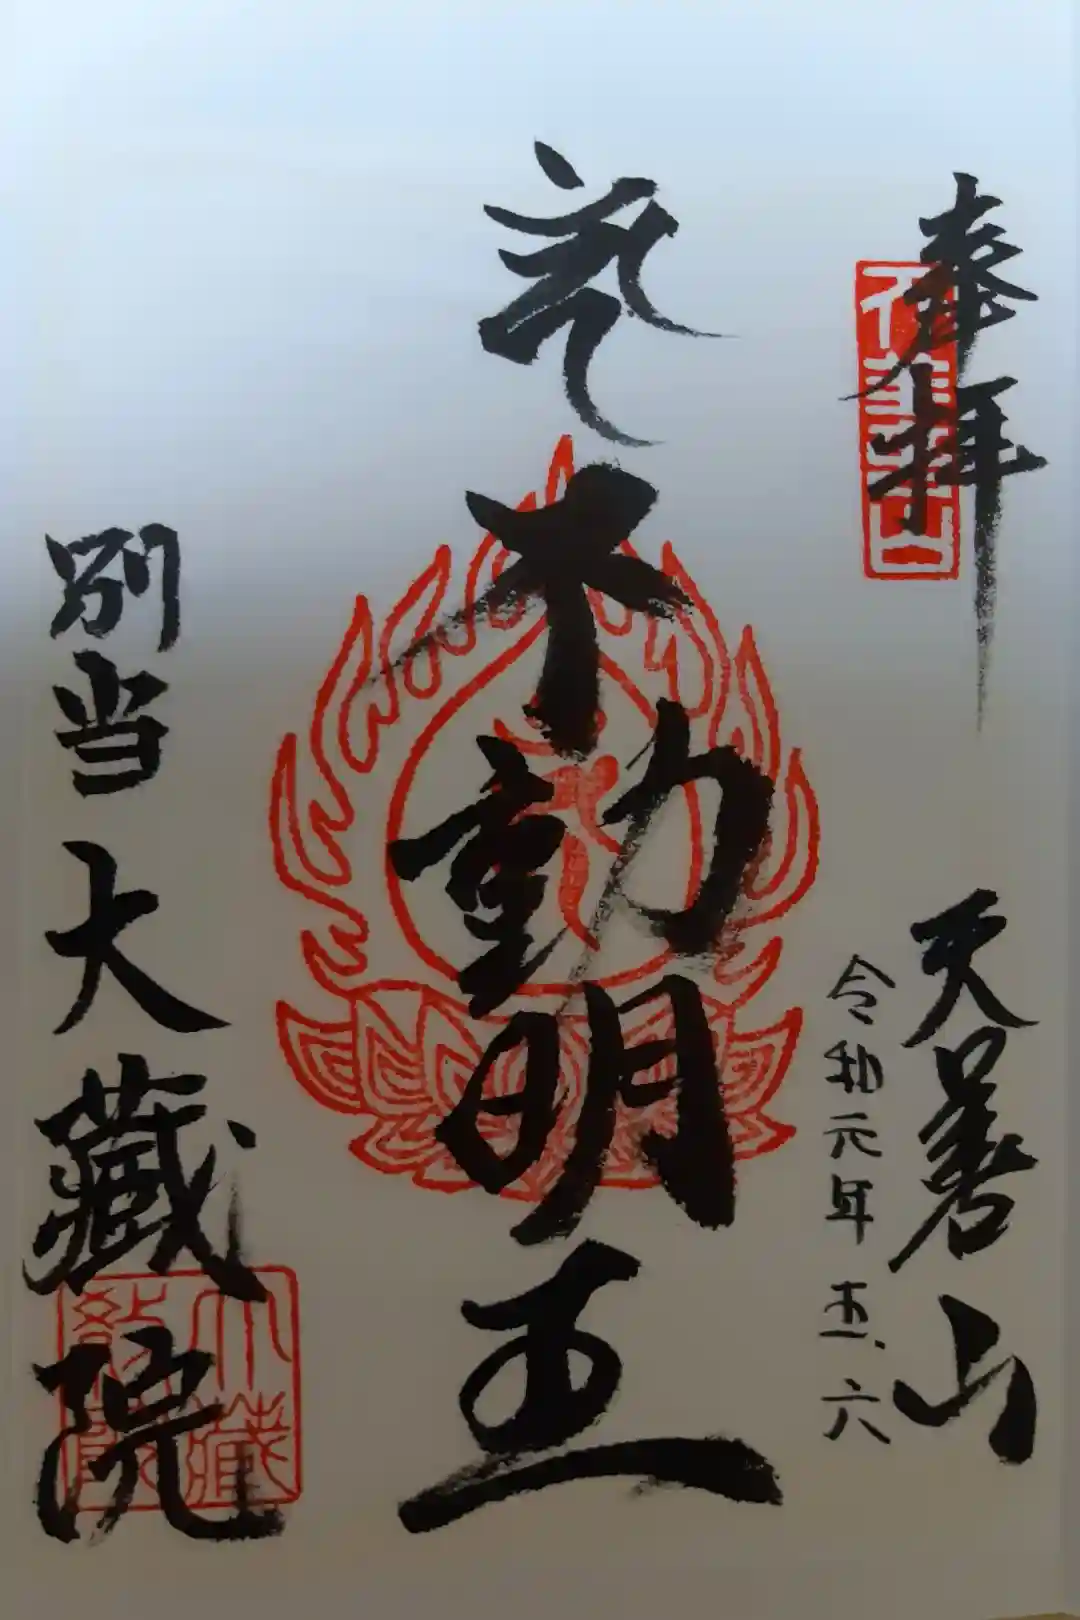 奉拝
天善山
令和元年 十一. 六
不動明王
別当大蔵院